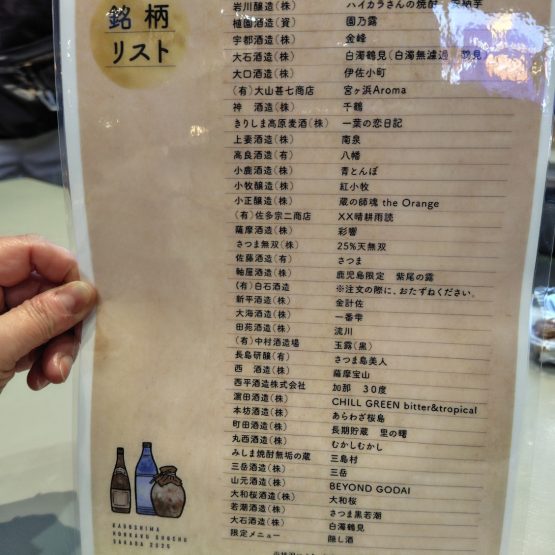 銘柄
リスト
岩川醸造(株) ハイカラさんの焼酎
植園酒造(資) 園乃露
宇都酒造(株) 金峰
大石酒造(株) 白濁鶴見(白濁無濾過 鶴見
大口酒造(株) 伊佐小町
(有)大山甚七商店 宮ヶ浜Aroma
神 酒造(株) 千鶴
きりしま高原麦酒(株) 一葉の恋日記
上妻酒造(株) 南泉
高良酒造(有) 八幡
小鹿酒造(株) 青とんぼ
小牧醸造(株) 紅小牧
小正醸造(株) 蔵の師魂 the Orange
(有)佐多宗二商店 XX晴耕雨読
薩摩酒造(株) 彩響
さつま無双(株) 25%天無双
佐藤酒造(有) さつま
軸屋酒造(株) 鹿児島限定 紫尾の露
(有)白石酒造 ※注文の際に、おたずねください。
新平酒造(株) 金計佐
大海酒造(株) 一番雫
田苑酒造(株) 流川
(有)中村酒造場 玉露(黒)
長島研醸(有) さつま島美人
西 酒造(株) 薩摩宝山
西平酒造株式会社 加那 30度
濵田酒造(株) CHILL GREEN bitter&tropical
本坊酒造(株) あらわざ桜島
町田酒造(株) 長期貯蔵 里の曙
丸西酒造(株) むかしむかし
みしま焼酎無垢の蔵 三島村
三岳酒造(株) 三岳
山元酒造(株) BEYOND GODAI
大和桜酒造(株) 大和桜
若潮酒造(株) さつま黒若潮
大石酒造(株) 白濁鶴見
限定メニュー 隠し酒
KAGOSHIMA
HONKAKU SHOCHU
SAKABA 2025